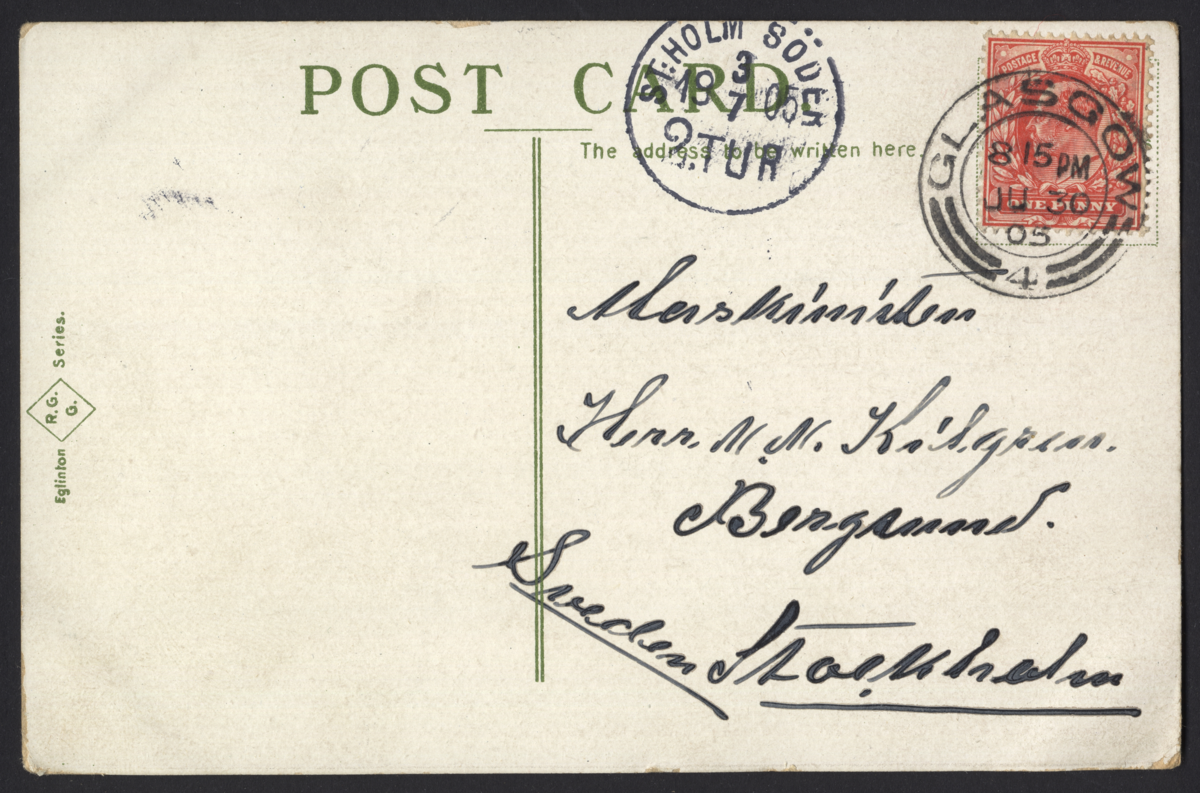 POST CARD.
The address to be written here.
ST:HOLM SÖDER
3
18 7 05
2.TUR
POSTAGE & REVENUE
ONE PENNY
GLASGOW
8 15 PM
JU 30
05
4
Eglinton R.G. G. Series.
Maskinisten
Herr. M. M. Kilgren.
Bergsund.
Sweden Stockholm